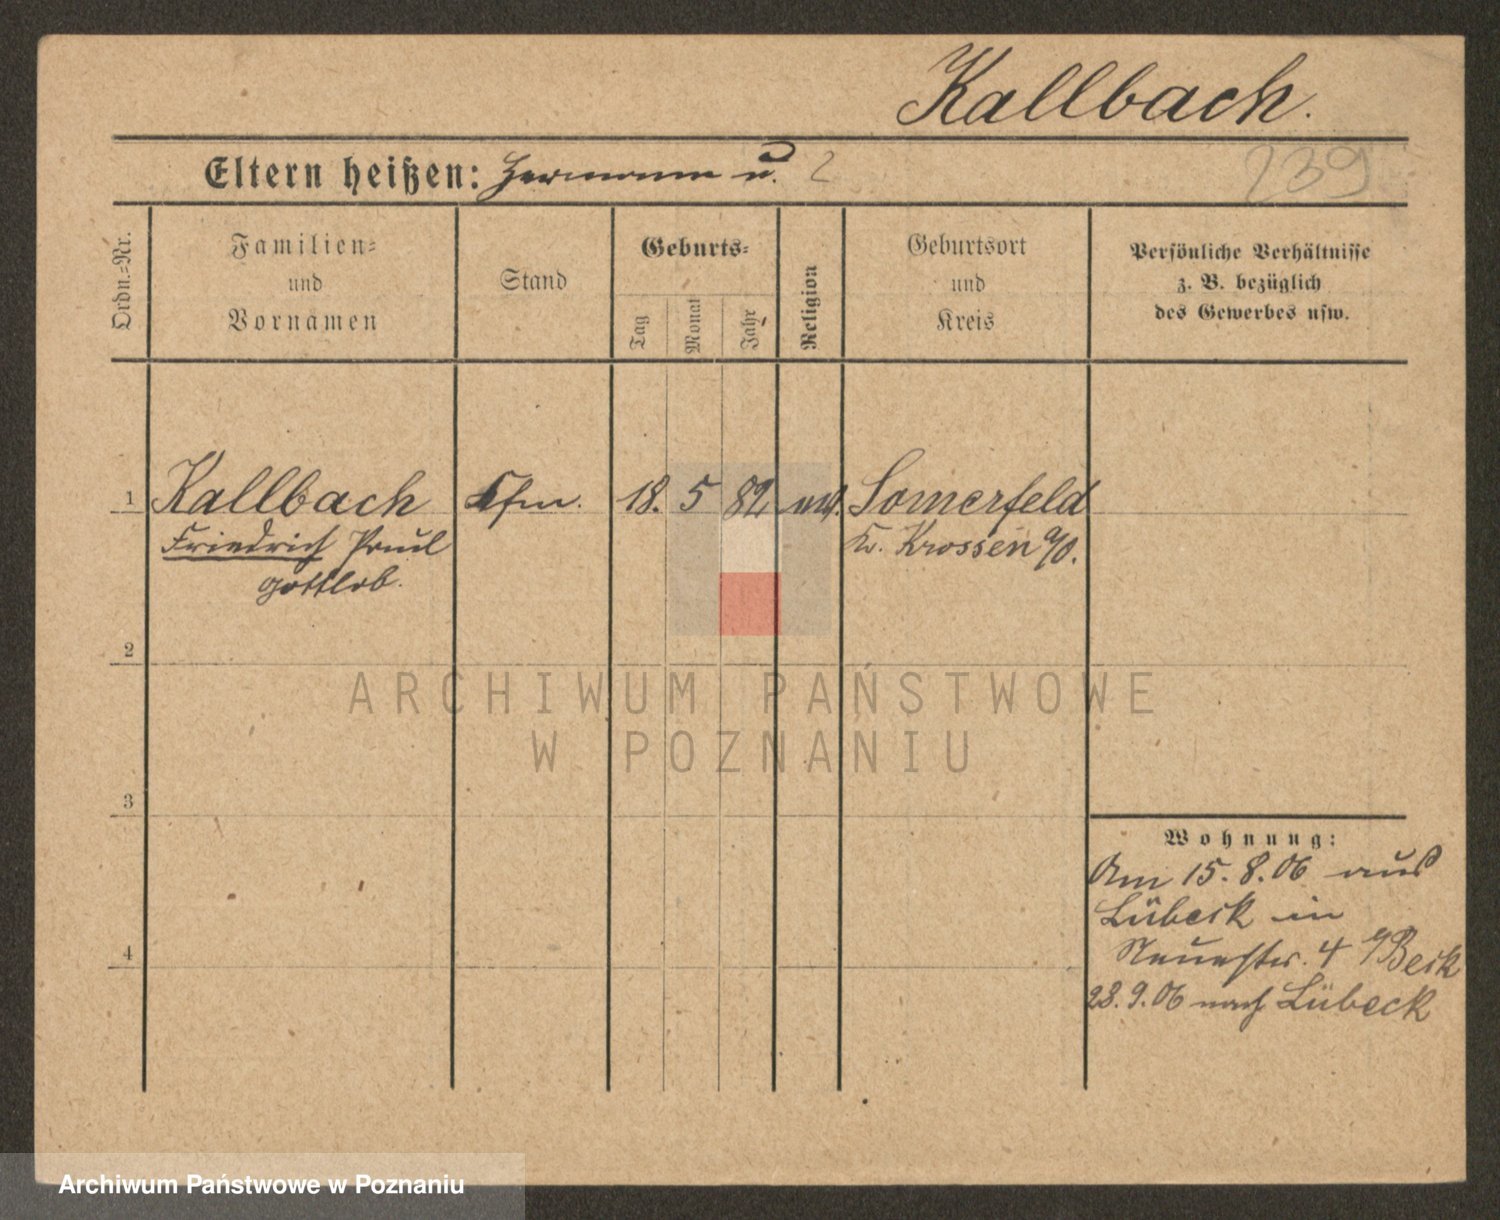 Kallbach.
Eltern heißen: Hermann u. 2
239
Ordn.=Nr.
Familien=
und
Vornamen
Stand
Geburts=
Tag
Monat
Jahr
Religion
Geburtsort
und
Kreis
Persönliche Verhältnisse
z. B. bezüglich
des Gewerbes usw.
1 Kallbach Kfm. 18. 5 82 Somerfeld
Friedrich Paul Kr. Krossen a/O.
Gottlob.
2
ARCHIWUM PAŃSTWOWE
W POZNANIU
3
Wohnung:
Am 15.8.06 aus
Lübeck in
4 Neuestr. 4 Beck
28.9.06 nach Lübeck
Archiwum Państwowe w Poznaniu